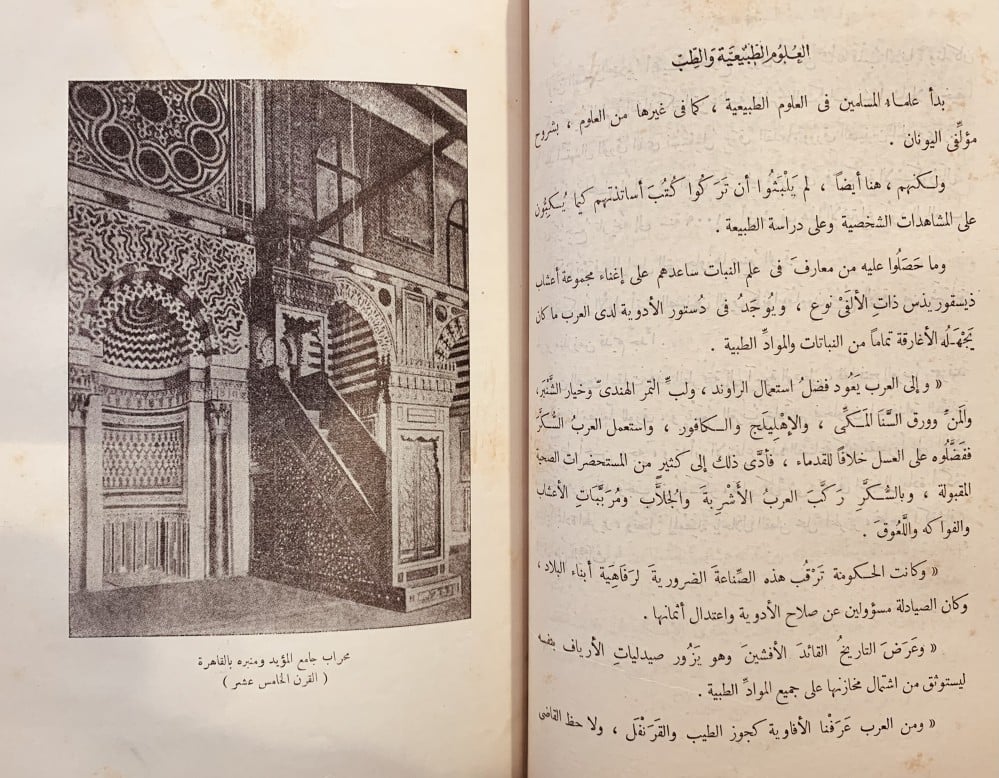 العُلُوم الطَّبِيعِيَّة وَالطِّبّ
بدأ علماء المسلمين فى العلوم الطبيعية ، كما فى غيرها من العلوم ، بشروح
مؤلِّفى اليونان .
ولكنهم ، هنا أيضاً ، لم يَلْبَثُوا أن تَرَكوا كُتُبَ أساتذتهم كيما يُسكِبُّون
على المشاهدات الشخصية وعلى دراسة الطبيعة .
وما حَصَلُوا عليه من معارفَ فى علم النبات ساعدهم على إغناء مجموعة أعشاب
ذيسقوريذس ذاتِ الألفَىْ نوع ، ويُوجَدُ فى دُستور الأدوية لدى العرب ما كان
يَجْهَلُه الأغارقة تماماً من النباتات والموادِّ الطبية .
« وإلى العرب يَعُود فضلُ استعمال الراوند ، ولبِّ التمر الهندىّ وخيار الشَّنْبَر،
والمَنِّ وورق السَّنَا المَكىِّ ، والإهْلِيلَج والكافور ، واستعمل العربُ السُّكَّرَ
ففَضَّلُوه على العسل خلافاً للقدماء ، فأدَّى ذلك إلى كثيرٍ من المستحضرات الصحية
المقبولة ، وبالسُّكَّرِ رَكَّبَ العربُ الأَشْرِبةَ والجُلاَّبَ ومُرَبَّبَاتِ الأعشاب
والفواكه واللَّعُوقَ .
« وكانت الحكومة تَرْقُب هذه الصِّناعةَ الضروريةَ لرَفَاهَية أبناء البلاد ،
وكان الصيادلة مسؤولين عن صلاح الأدوية واعتدال أثمانها .
« وعَرَضَ التاريخُ القائدَ الأفشينَ وهو يَزُور صيدلياتِ الأرياف بنفسه
ليستوثق من اشتمال مخازنها على جميع الموادِّ الطبية .
« ومن العرب عَرَفْنا الأفاوية كجوز الطيب والقَرَنْفُل ، ولاحظ القاضى
محراب جامع المؤيد ومنبره بالقاهرة
( القرن الخامس عشر )